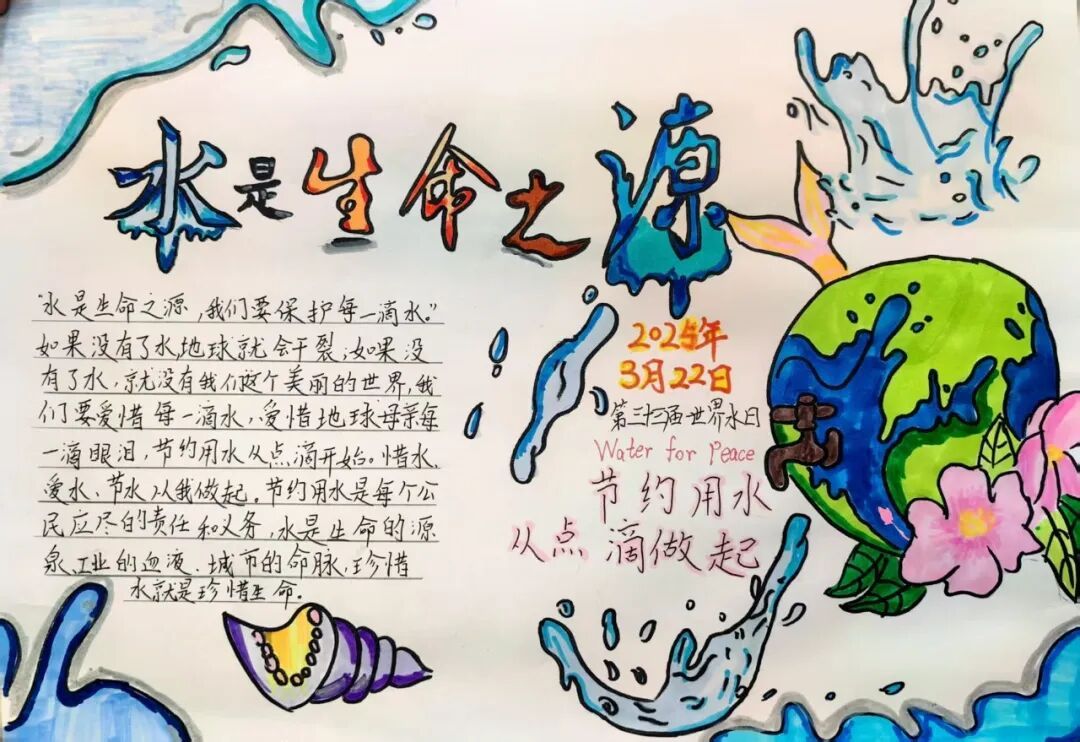 水是生命之源
"水是生命之源，我们要保护每一滴水。"
如果没有了水，地球就会干裂；如果没
有了水，就没有我们这个美丽的世界，我
们要爱惜每一滴水，爱惜地球母亲每
一滴眼泪，节约用水从点滴开始。惜水、
爱水、节水，从我做起。节约用水是每个公
民应尽的责任和义务，水是生命的源
泉、工业的血液、城市的命脉，珍惜
水就是珍惜生命。
2025年
3月22日
第三十三届世界水日
Water for Peace
节约用水
从点滴做起